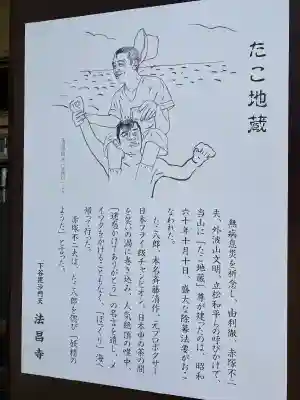 たこ地蔵
無病息災を祈念し、由利徹、赤塚不二
夫、外波山文明、立松和平らの呼びかけで、
当山に「たこ地蔵」尊が建ったのは、昭和
六十年十月十日、盛大な除幕法要がおこ
なわれた。
たこ八郎・本名斉藤清作。元プロボクサー
日本フライ級チャンピオン。日本中の茶の間
を笑いの渦に巻き込み、人気絶頂の唯中、
「迷惑かけてありがとう」の名言を遺し、メ
イワクをかけることもなく、「ぽっくり」海へ
帰って行った。
赤塚不二夫は、たこ八郎を偲び「妖精の
ようだった」と言った。
下谷毘沙門天
法昌寺